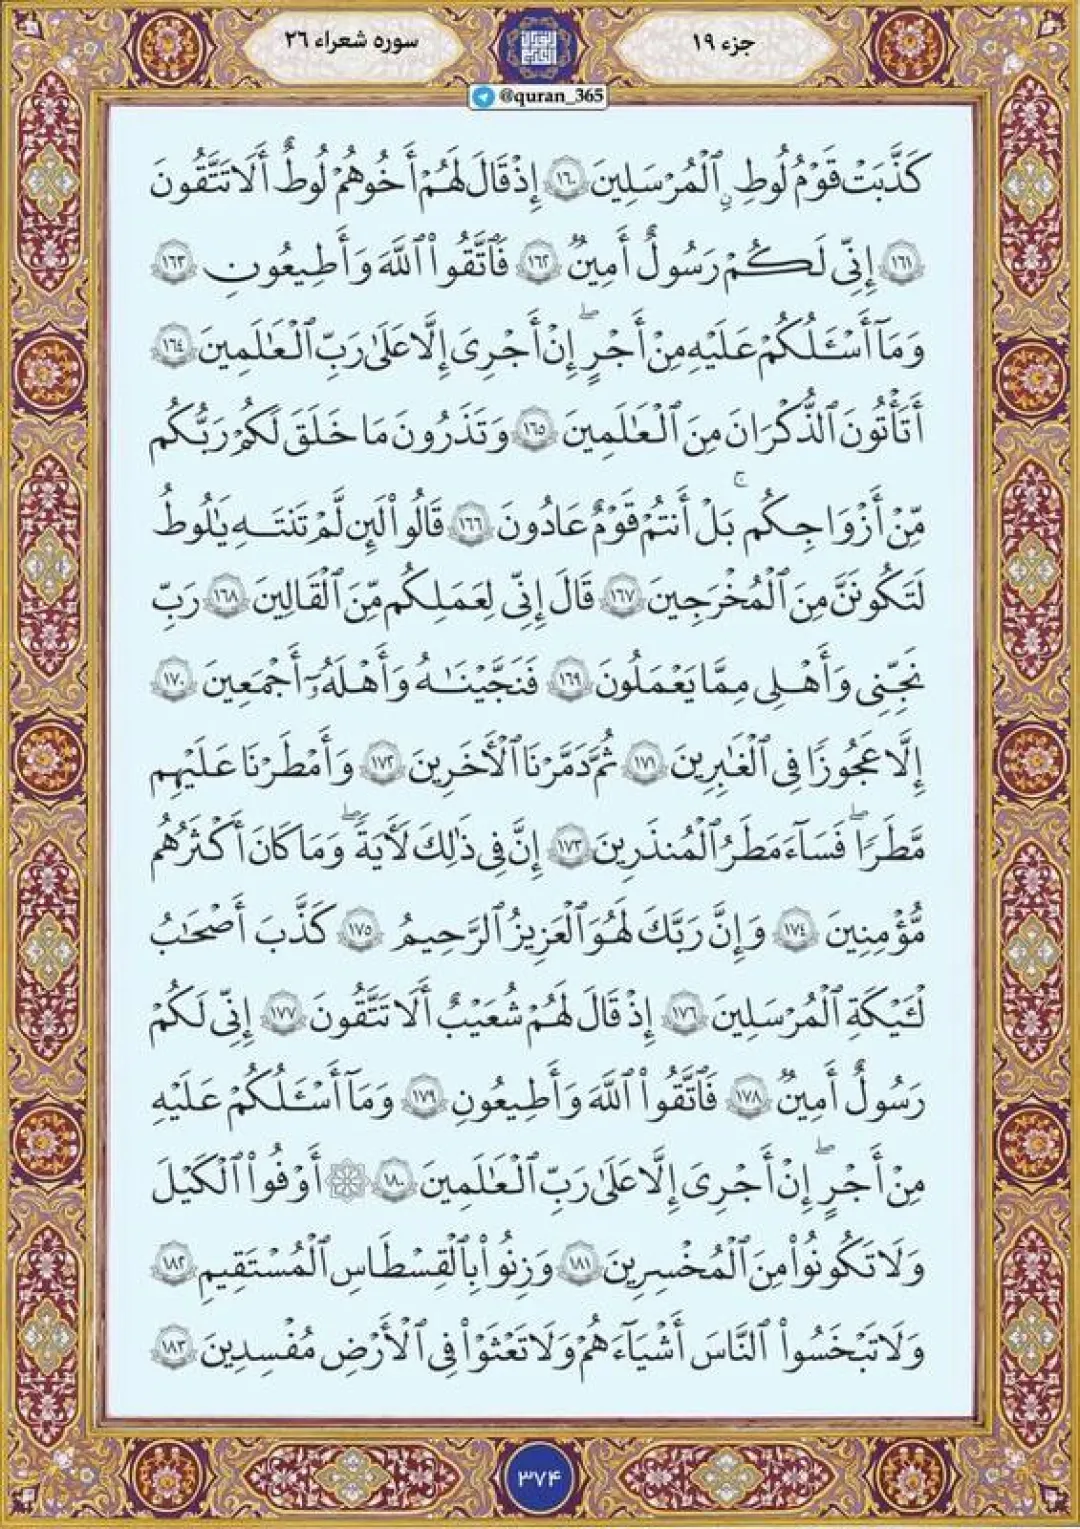 جزء ۱۹
سوره شعراء ۲۶
@quran_365
كَذَّبَتْ قَوْمُ لُوطٍ ٱلْمُرْسَلِينَ ١٦٠ إِذْ قَالَ لَهُمْ أَخُوهُمْ لُوطٌ أَلَا تَتَّقُونَ
١٦١ إِنِّى لَكُمْ رَسُولٌ أَمِينٌ ١٦٢ فَٱتَّقُوا۟ ٱللَّهَ وَأَطِيعُونِ ١٦٣
وَمَآ أَسْـَٔلُكُمْ عَلَيْهِ مِنْ أَجْرٍ ۖ إِنْ أَجْرِىَ إِلَّا عَلَىٰ رَبِّ ٱلْعَـٰلَمِينَ ١٦٤
أَتَأْتُونَ ٱلذُّكْرَانَ مِنَ ٱلْعَـٰلَمِينَ ١٦٥ وَتَذَرُونَ مَا خَلَقَ لَكُمْ رَبُّكُم
مِّنْ أَزْوَٰجِكُم ۚ بَلْ أَنتُمْ قَوْمٌ عَادُونَ ١٦٦ قَالُوا۟ لَئِن لَّمْ تَنتَهِ يَـٰلُوطُ
لَتَكُونَنَّ مِنَ ٱلْمُخْرَجِينَ ١٦٧ قَالَ إِنِّى لِعَمَلِكُم مِّنَ ٱلْقَالِينَ ١٦٨ رَبِّ
نَجِّنِى وَأَهْلِى مِمَّا يَعْمَلُونَ ١٦٩ فَنَجَّيْنَـٰهُ وَأَهْلَهُۥٓ أَجْمَعِينَ ١٧٠
إِلَّا عَجُوزًا فِى ٱلْغَـٰبِرِينَ ١٧١ ثُمَّ دَمَّرْنَا ٱلْـَٔاخَرِينَ ١٧٢ وَأَمْطَرْنَا عَلَيْهِم
مَّطَرًا ۖ فَسَآءَ مَطَرُ ٱلْمُنذَرِينَ ١٧٣ إِنَّ فِى ذَٰلِكَ لَـَٔايَةً ۖ وَمَا كَانَ أَكْثَرُهُم
مُّؤْمِنِينَ ١٧٤ وَإِنَّ رَبَّكَ لَهُوَ ٱلْعَزِيزُ ٱلرَّحِيمُ ١٧٥ كَذَّبَ أَصْحَـٰبُ
لْـَٔيْكَةِ ٱلْمُرْسَلِينَ ١٧٦ إِذْ قَالَ لَهُمْ شُعَيْبٌ أَلَا تَتَّقُونَ ١٧٧ إِنِّى لَكُمْ
رَسُولٌ أَمِينٌ ١٧٨ فَٱتَّقُوا۟ ٱللَّهَ وَأَطِيعُونِ ١٧٩ وَمَآ أَسْـَٔلُكُمْ عَلَيْهِ
مِنْ أَجْرٍ ۖ إِنْ أَجْرِىَ إِلَّا عَلَىٰ رَبِّ ٱلْعَـٰلَمِينَ ١٨٠ ۞ أَوْفُوا۟ ٱلْكَيْلَ
وَلَا تَكُونُوا۟ مِنَ ٱلْمُخْسِرِينَ ١٨١ وَزِنُوا۟ بِٱلْقِسْطَاسِ ٱلْمُسْتَقِيمِ ١٨٢
وَلَا تَبْخَسُوا۟ ٱلنَّاسَ أَشْيَآءَهُمْ وَلَا تَعْثَوْا۟ فِى ٱلْأَرْضِ مُفْسِدِينَ ١٨٣
۳۷۴